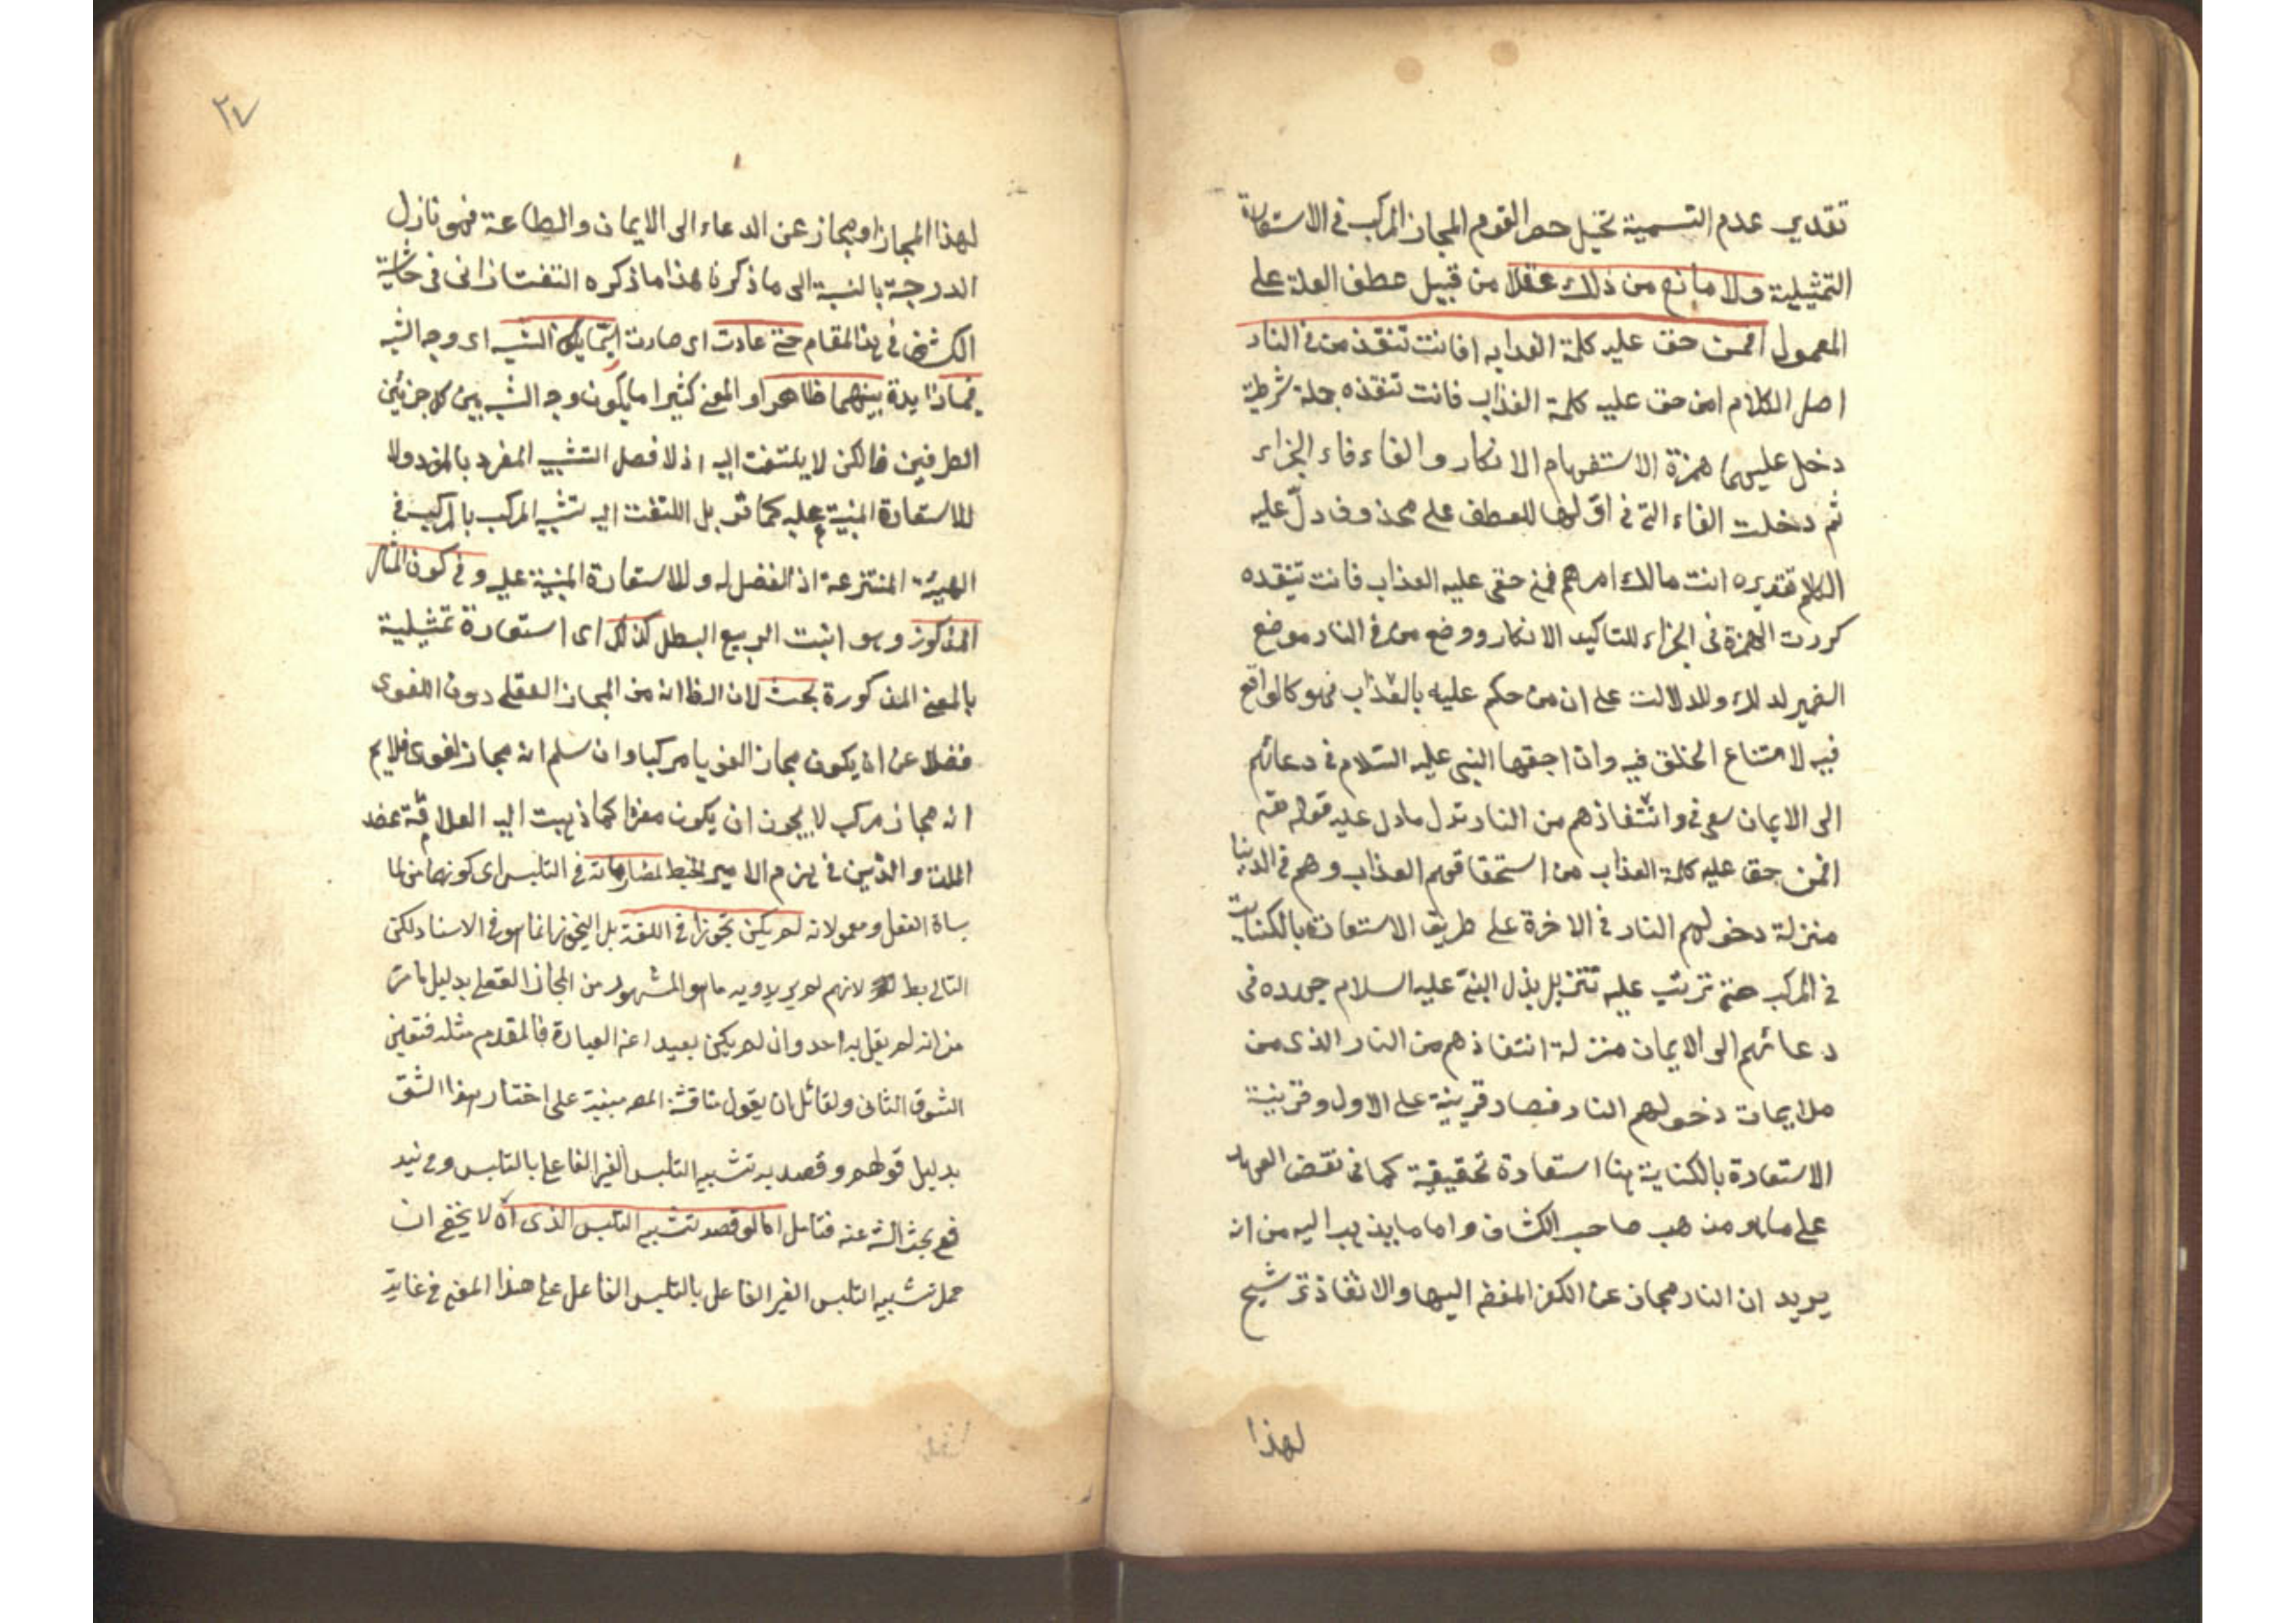 تقدير عدم التسمية تخيل حصر القوم المجاز المركب في الاستعارة
التمثيلية ولا مانع من ذلك عقلا من قبيل عطف العلة على
المعمول افمن حق عليه كلمة العذاب افانت تنقذ من في النار
اصل الكلام امن حق عليه كلمة العذاب فانت تنقذه جملة شرطية
دخل عليها همزة الاستفهام الانكار والفاء فاء الجزاء
ثم دخلت الفاء التي في اولها للعطف على محذوف دلّ عليه
الكلام تقديره انت مالك امرهم فمن حق عليه العذاب فانت تنقذه
كررت الهمزة في الجزاء للتاكيد الانكار ووضع من في النار موضع
الضمير لذلك وللدلالت على ان من حكم عليه بالعذاب فهو كالواقع
فيه لامتناع الخلف فيه وان النبي عليه السلام في دعائهم
الى الايمان سعى في وانقاذهم من النار نزل ما دل عليه قوله
افمن حق عليه كلمة العذاب من استحقاقهم العذاب وهم في الدنيا
منزلة دخولهم النار في الاخرة على طريق الاستعارة بالكناية
في المركب حتى ترتب عليه تنزيل بذل النبي عليه السلام جهده في
دعائهم الى الايمان منزلة انقاذهم من النار الذي من
ملايمات دخولهم النار فصار قرينة على الاول وقرينة
الاستعارة بالكناية هنا استعارة تحقيقية كما في نقض العهد
على ما هو مذهب صاحب الكشاف واما ما يذهب اليه من انه
يريد ان النار مجاز عن الكفر المفضي اليها والانقاذ ترشيح
لهذا
٢٧
لهذا المجاز او مجاز عن الدعاء الى الايمان والطاعة فهو نازل
الدرجة بالنسبة الى ما ذكرنا هذا ما ذكره التفتازاني في حاشية
الكشاف في هذا المقام حتى عادت اى صارت الشبه اى وجه الشبه
بينهما ظاهر او المعنى كثيرا ما يكون وجه الشبه بين كل جزئين
الطرفين لكن لا يلتفت اليه اذ لا فضل التشبيه المفرد بالمفرد ولا
للاستعارة المبنية عليه كما مر بل اللتفت اليه تشبيه المركب بالمركب في
الهيئة المنتزعة اذ الفضل له وللاستعارة المبنية عليه وفي كون المثال
المذكور وهو انبت الربيع البطل كذلك اى استعارة تمثيلية
بالمعنى المذكورة بحث لان الظ انه من المجاز العقلي دون اللغوى
فضلا عن ان يكون مجاز اللغويا مركبا وان سلم انه مجاز لغوى فلا يم
انه مجاز مركب لا يجوز ان يكون مفردا كما ذهبت اليه العلاقة عضد
الملة والدين في هزم الامير الجند لمضارعاته في التلبس اى كونها من
الفعل ومعمولاته لم يكن تجوزا في اللغة بل التجوز انما هو في الاسناد لكن
التالي بط لانهم لم يريدوا به ما هو المشهور من المجاز العقلي بدليل ما مر
من انه لم يقل به احد وان لم يكن بعيدا عن العبارة فالمقدم مثله فتعين
الشق الثاني ولقائل ان يقول مناقشة المص مبنية على اختيار هذا الشق
بدليل قولهم وقصد به تشبيه التلبس الغير الفاعلي بالتلبس
بحث عنه فتامل كما لو قصد تشبيه التلبس الذى آه لا يخفى ان
حمل تشبيه التلبس الغير الفاعلى بالتلبس الفاعل على هذا المعنى في غاية